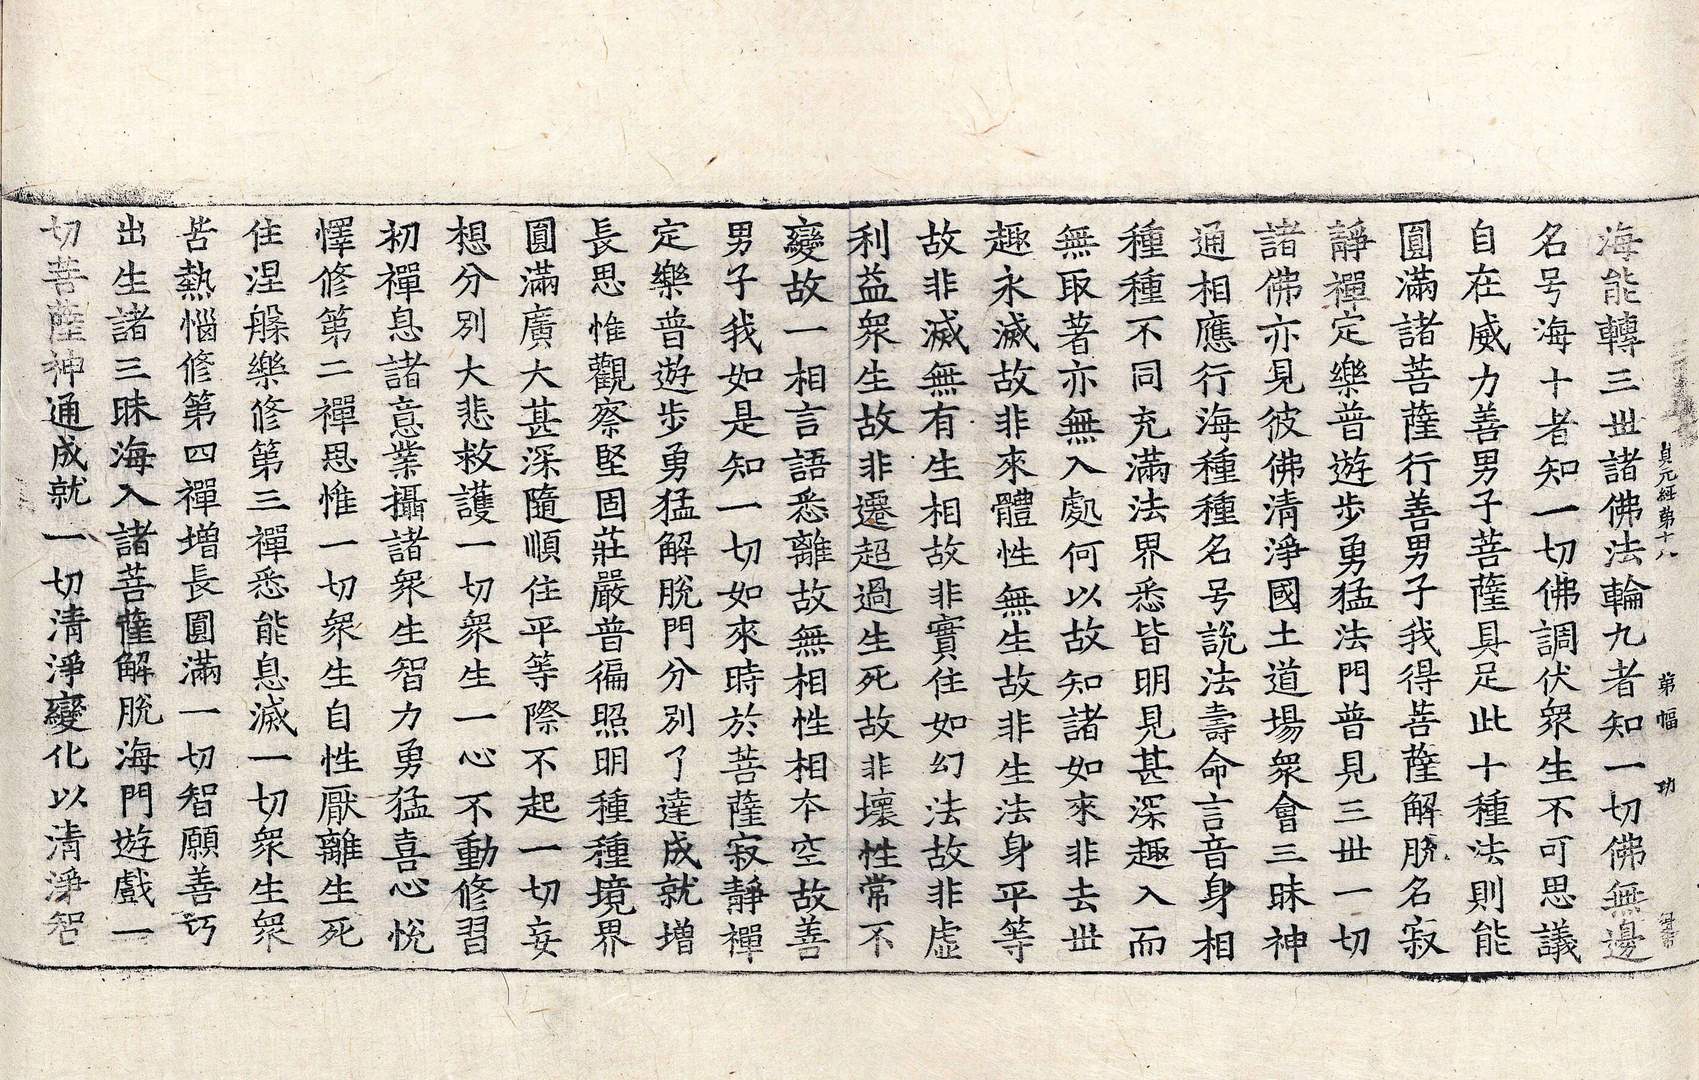 貞元経第十八 第 幅 功
海能轉三世諸佛法輪九者知一切佛無邊
名号海十者知一切佛調伏衆生不可思議
自在威力善男子菩薩具足此十種法則能
圓滿諸菩薩行善男子我得菩薩解脱名寂
靜禪定樂普遊步勇猛法門普見三世一切
諸佛亦見彼佛清淨國土道場衆會三昧神
通相應行海種種名号說法壽命言音身相
種種不同充滿法界悉皆明見甚深趣入而
無取著亦無入處何以故知諸如來非去世
趣永滅故非來體性無生故非生法身平等
故非滅無有生相故非實住如幻法故非虛
利益衆生故非遷超過生死故非壞性常不
變故一相言語悉離故無相性相本空故善
男子我如是知一切如來時於菩薩寂靜禪
定樂普遊步勇猛解脫門分別了達成就增
長思惟觀察堅固莊嚴普徧照明種種境界
圓滿廣大甚深隨順住平等際不起一切妄
想分別大悲救護一切衆生一心不動修習
初禪息諸意業攝諸衆生智力勇猛喜心悅
懌修第二禪思惟一切衆生自性厭離生死
住涅槃樂修第三禪悉能息滅一切衆生衆
苦熱惱修第四禪增長圓滿一切智願善巧
出生諸三昧海入諸菩薩解脫海門遊戲一
切菩薩神通成就一切清淨變化以清淨智